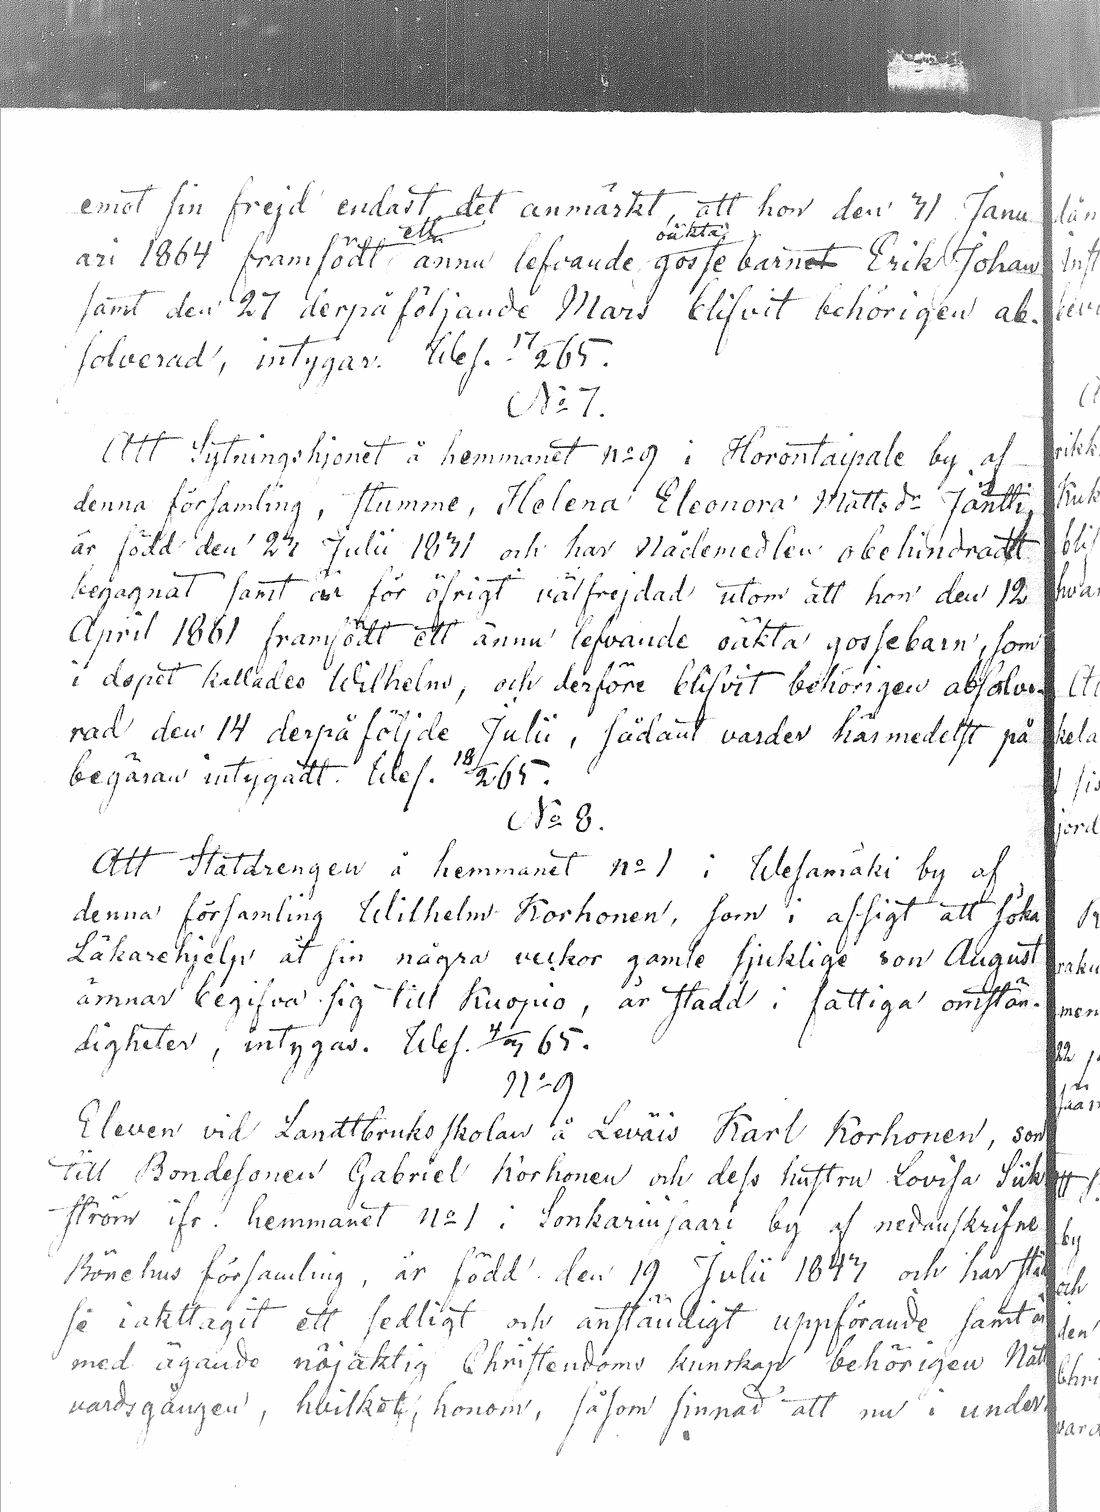 emot sin frejd endast det anmärkt, att hon den 31 Janu
ari 1864 framfödt ett ännu lefvande oäkta gossebarnet Erik Johan
samt den 27 derpåföljande Mars blifvit behörigen ab-
solverad, intygar. Wes. 17/2 65.
No 7.
Att Sytningshjonet å hemmanet no 9 i Horontaipale by af
denna församling, stumme, Helena Eleonora Mattsdr Jäntti,
är född den 23 Julii 1831 och har Nådemedlen obehindradt
begagnat samt är för öfrigt välfrejdad utom att hon den 12
April 1861 framfödt ett ännu lefvande oäkta gossebarn, som
i dopet kallades Wilhelm, och derföre blifvit behörigen absolve-
rad den 14 derpåföljde Julii, sådant varder härmedelst på
begäran intygadt. Wes. 18/2 65.
No 8.
Att Statdrengen å hemmanet no 1 i Wesamäki by af
denna församling Wilhelm Korhonen, som i afsigt att söka
Läkarehjelp åt sin några veckor gamle sjuklige son August
ämnar begifva sig till Kuopio, är stadd i fattiga omstän-
digheter, intygas. Wes. 4/3 65.
No 9
Eleven vid Landtbruksskolan å Leväis Karl Korhonen, son
till Bondesonen Gabriel Korhonen och dess hustru Lovisa Sük
ström ifr. hemmanet No 1 i Sonkarinsaari by af nedanskrifne
församling, är född den 19 Julii 1843 och har stä
se iakttagit ett sedligt och anständigt uppförande samt är
med ägande nöjaktig Christendoms kunskap behörigen Natt
vardsgången, hvilket, honom, såsom sinnad att nu i under